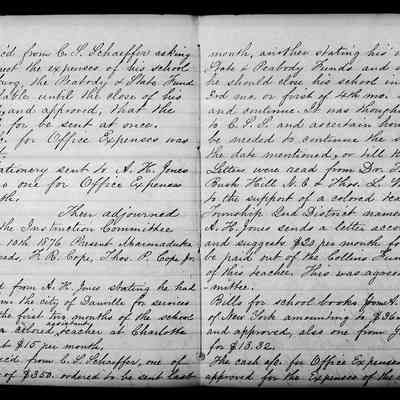 c'd from C. S. Schaeffer asking
uest the expenses of his school
ury, the Peabody & State Fund
lable until the close of his
, and approved, that the
for be sent at once.
c. for Office Expenses was
tationery sent to A. H. Jones
so one for Office Expenses
th.
Then adjourned
the Instruction Committee
10th 1876 Present Marmaduke
eeds, F. R. Cope, Thos. P. Cope Jr.
d from A. H. Jones stating he had
m the city of Danville for services
the first two months of the school
a colored assistant teacher at Charlotte
at $15 per month.
ec'd from C. S. Schaeffer, one of
of $350. ordered to be sent last
month, another stating his
State & Peabody Funds and
he should close his school in
3rd mo. or first of 4th mo.
and continue. It was though
C. S. S. and ascertain how
be needed to continue the s
the date mentioned, or till th
Letters were read from
Bush Hill N.C & Thos. L.
to the support of a colored tea
Township 2nd District name
A. H. Jones sends a letter acco
and suggests $20 per month fo
be paid out of the Collins Fun
of this teacher. This was agree
mittee.
Bills for school books from A.
of New York amounting to $36
and approved, also one from J
for $13.32.
The cash a/c. for Office Expenses
approved for the Expenses of the